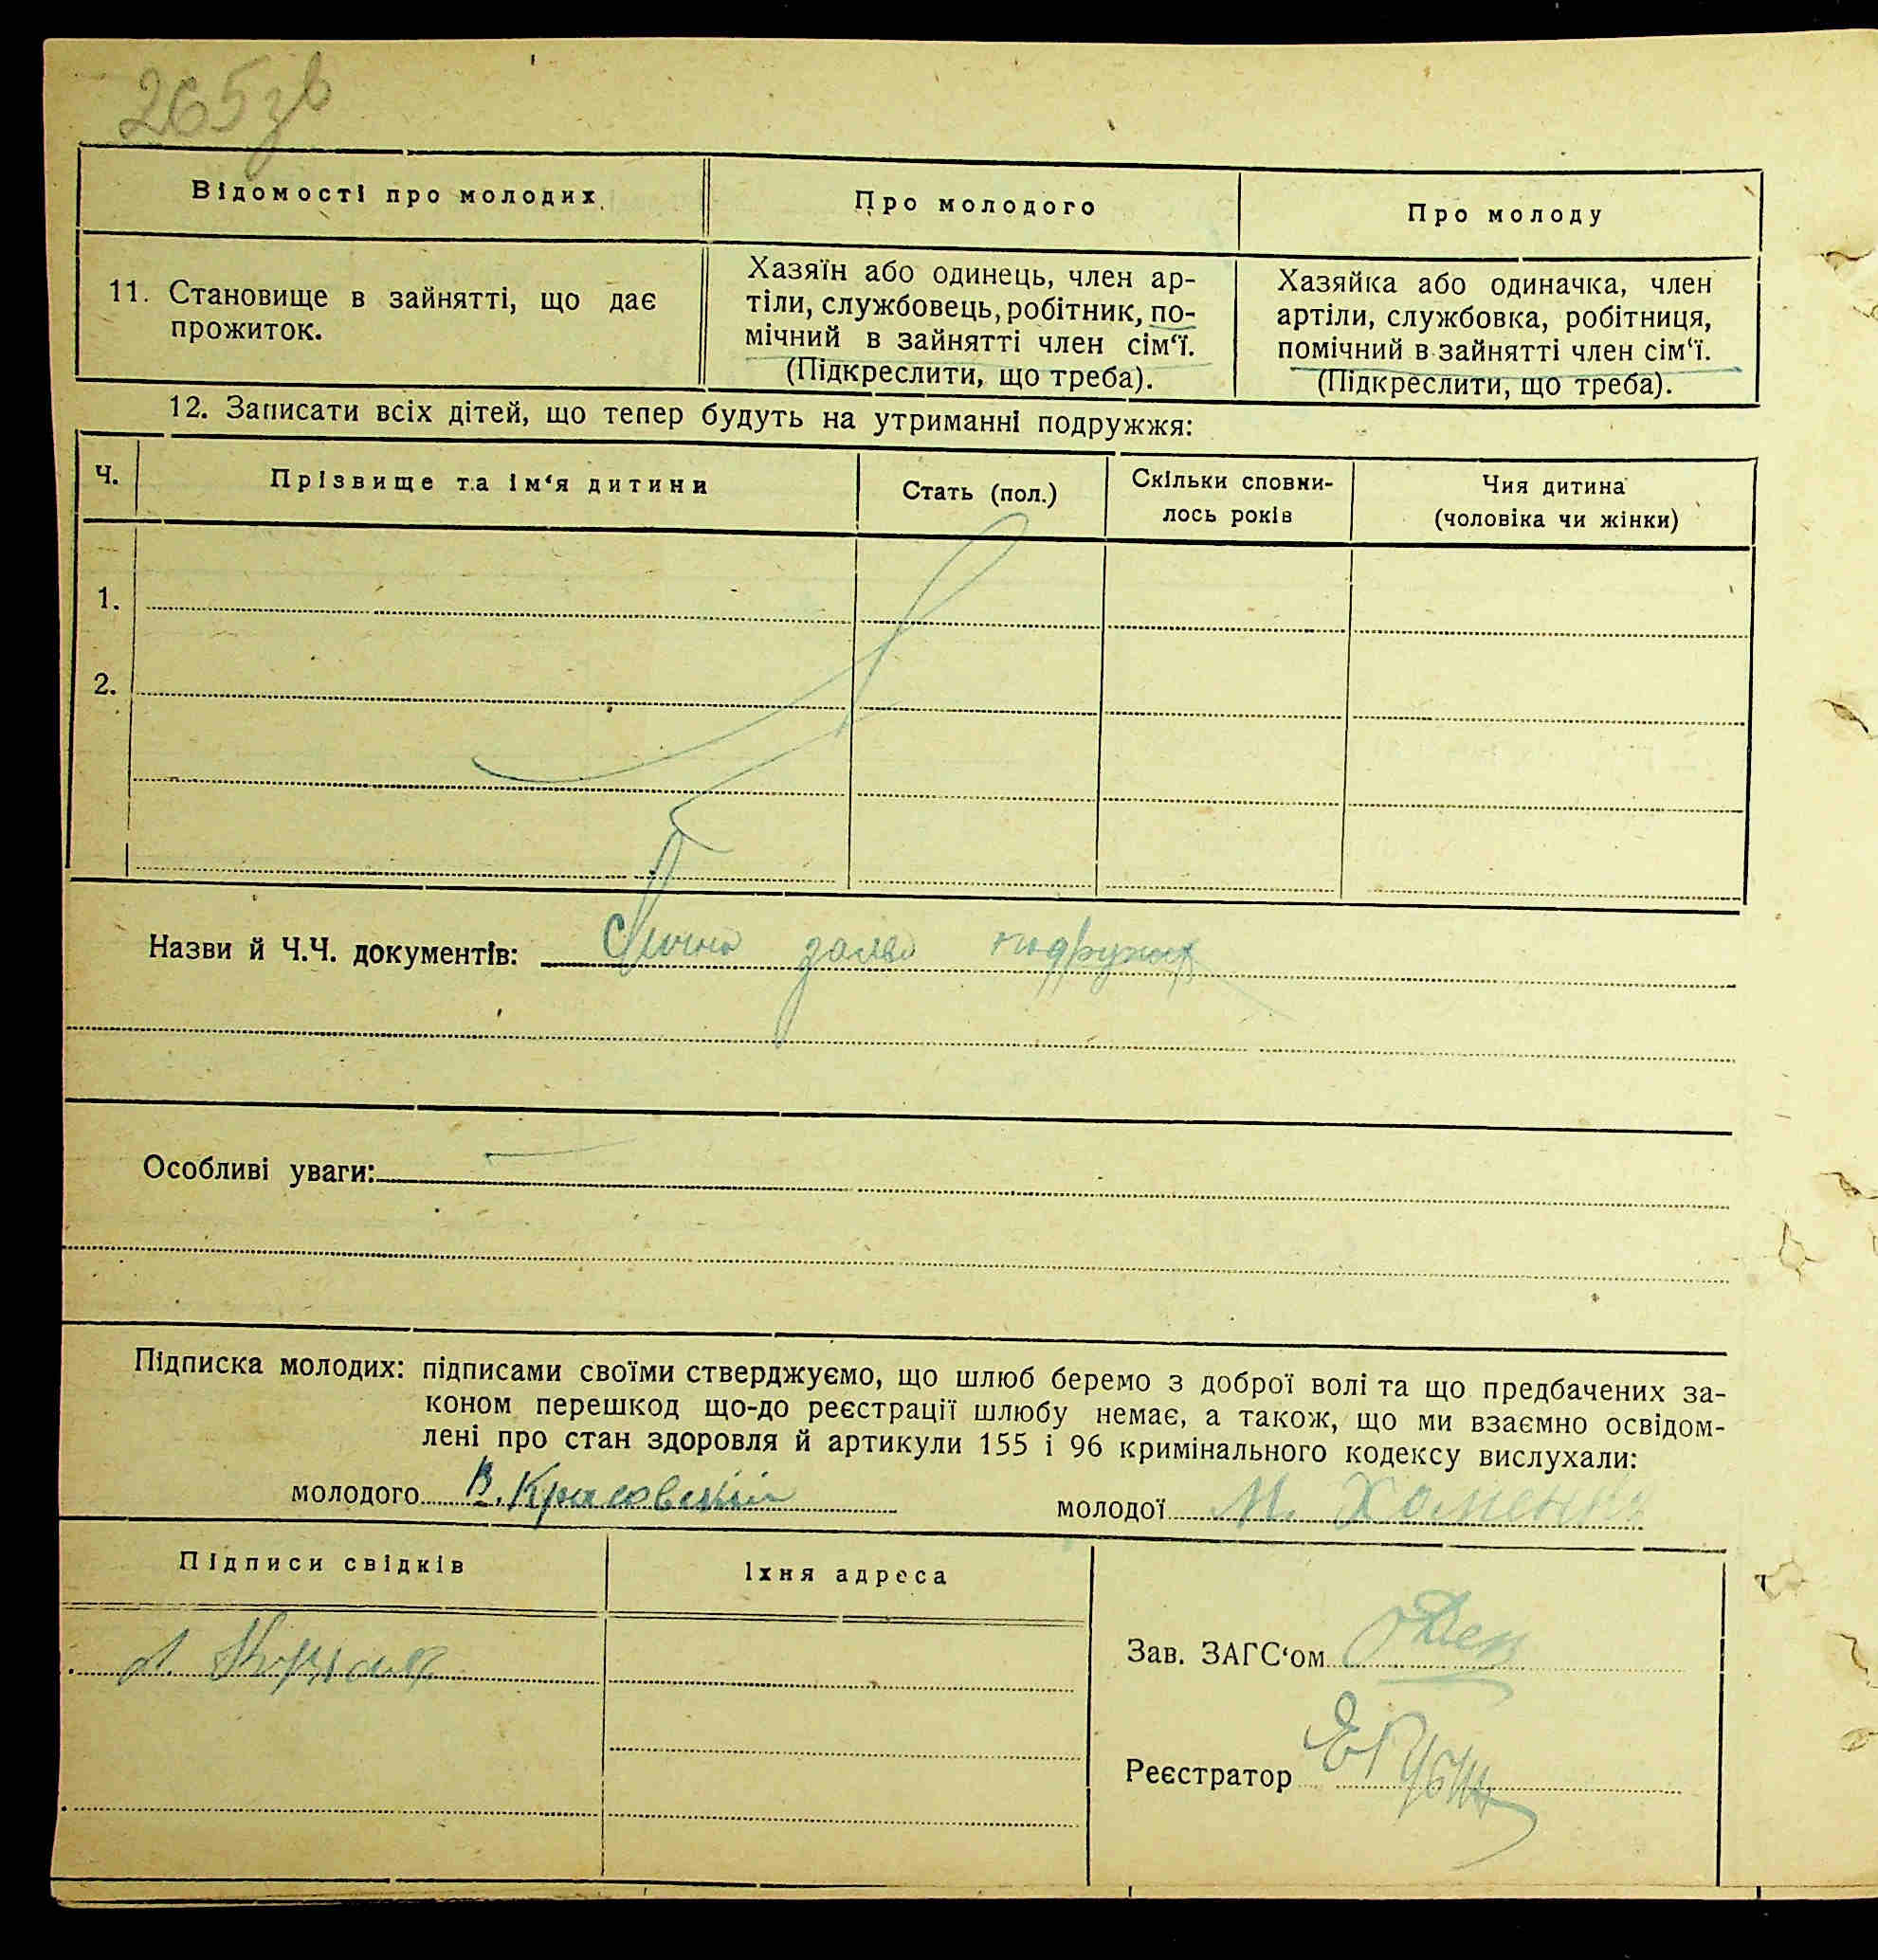 265 зв
Відомості про молодих
Про молодого
Про молоду
11. Становище в зайнятті, що дає
прожиток.
Хазяїн або одинець, член ар-
тіли, службовець, робітник, по-
мічний в зайнятті член сім‘ї.
(Підкреслити, що треба).
Хазяйка або одиначка, член
артіли, службовка, робітниця,
помічний в зайнятті член сім‘ї.
(Підкреслити, що треба).
12. Записати всіх дітей, що тепер будуть на утриманні подружжя:
Ч.
Прізвище та ім‘я дитини
Стать (пол.)
Скільки сповни-
лось років
Чия дитина
(чоловіка чи жінки)
1.
2.
Назви й Ч.Ч. документів:
Особливі уваги:
Підписка молодих: підписами своїми стверджуємо, що шлюб беремо з доброї волі та що предбачених за-
коном перешкод що-до реєстрації шлюбу немає, а також, що ми взаємно освідом-
лені про стан здоровля й артикули 155 і 96 кримінального кодексу вислухали:
молодого В. Красовский
молодої М. Хоменко
Підписи свідків
Їхня адреса
Зав. ЗАГС‘ом
Реєстратор